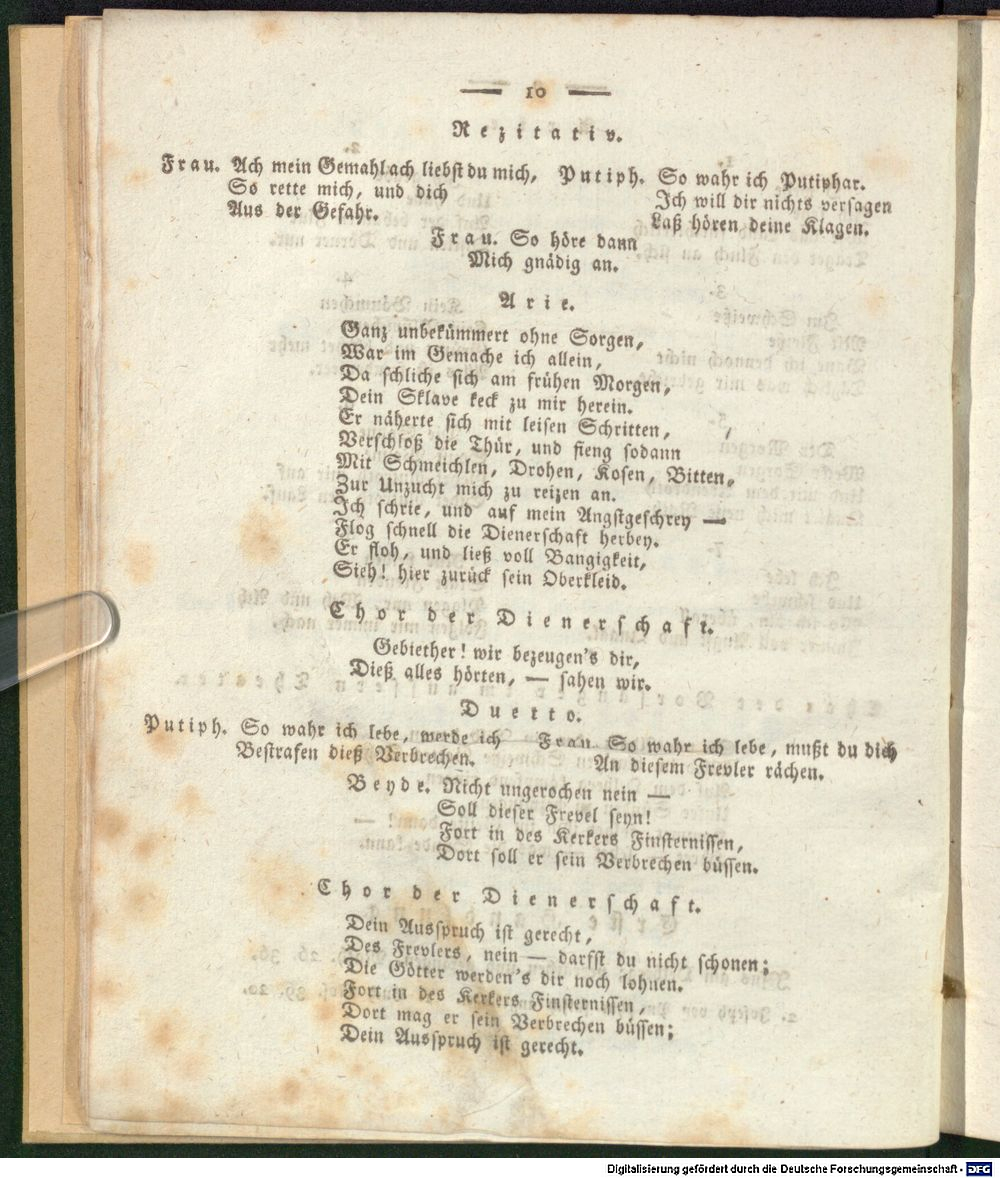 — 10 —
Rezitativ.
Frau. Ach mein Gemahl ach liebst du mich,
So rette mich, und dich
Aus der Gefahr.
Putiph. So wahr ich Putiphar.
Ich will dir nichts versagen
Laß hören deine Klagen.
Frau. So höre dann
Mich gnädig an.
Arie.
Ganz unbekümmert ohne Sorgen,
War im Gemache ich allein,
Da schliche sich am frühen Morgen,
Dein Sklave keck zu mir herein.
Er näherte sich mit leisen Schritten,
Verschloß die Thür, und fieng sodann
Mit Schmeichlen, Drohen, Kosen, Bitten,
Zur Unzucht mich zu reizen an.
Ich schrie, und auf mein Angstgeschrey —
Flog schnell die Dienerschaft herbey.
Er floh, und ließ voll Bangigkeit,
Sieh! hier zurück sein Oberkleid.
Chor der Dienerschaft.
Gebiether! wir bezeugen's dir,
Dieß alles hörten, — sahen wir.
Duetto.
Putiph. So wahr ich lebe, werde ich
Bestrafen dieß Verbrechen.
Frau. So wahr ich lebe, mußt du dich
An diesem Frevler rächen.
Beyde. Nicht ungerochen nein —
Soll dieser Frevel seyn!
Fort in des Kerkers Finsternissen,
Dort soll er sein Verbrechen büssen.
Chor der Dienerschaft.
Dein Ausspruch ist gerecht,
Des Frevlers, nein — darfst du nicht schonen;
Die Götter werden's dir noch lohnen.
Fort in des Kerkers Finsternissen,
Dort mag er sein Verbrechen büssen;
Dein Ausspruch ist gerecht.
Digitalisierung gefördert durch die Deutsche Forschungsgemeinschaft - DFG